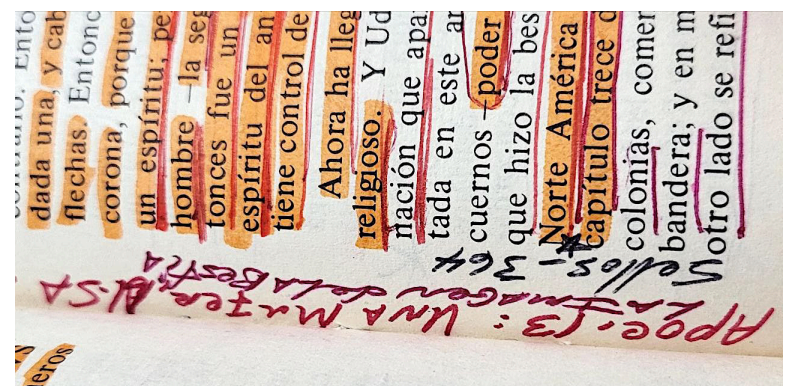 dada una, y cab
flechas. Entonc
corona, porque
un espíritu; pe
hombre —la seg
tonces fue un
espíritu del an
tiene control de
Ahora ha lleg
religioso. Y Ud
nación que apa
tada en este ar
cuernos —poder
que hizo la bes
Norte América
capítulo trece d
colonias, comer
bandera; y en m
otro lado se refi
Sellos - 364
La Imagen de la Bestia
APOC. 13: UNA MUJER,
eros